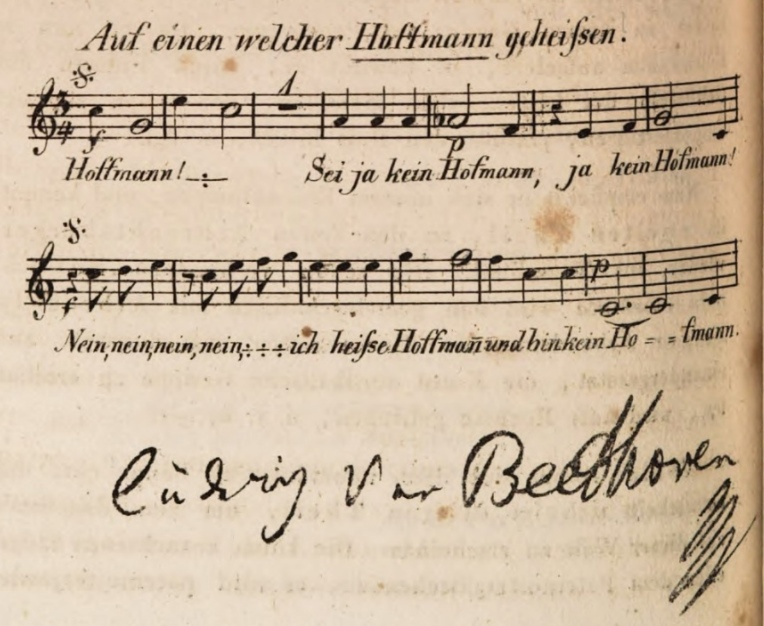 Auf einen welcher Hoffmann geheißen.
1
f
p
Hoffmann! -÷ Sei ja kein Hofmann, ja kein Hofmann!
p
f
Nein, nein, nein, nein, ÷ ÷ ÷ ich heiße Hoffmañ und bin kein Ho = = fmann.
Ludwig Van Beethoven